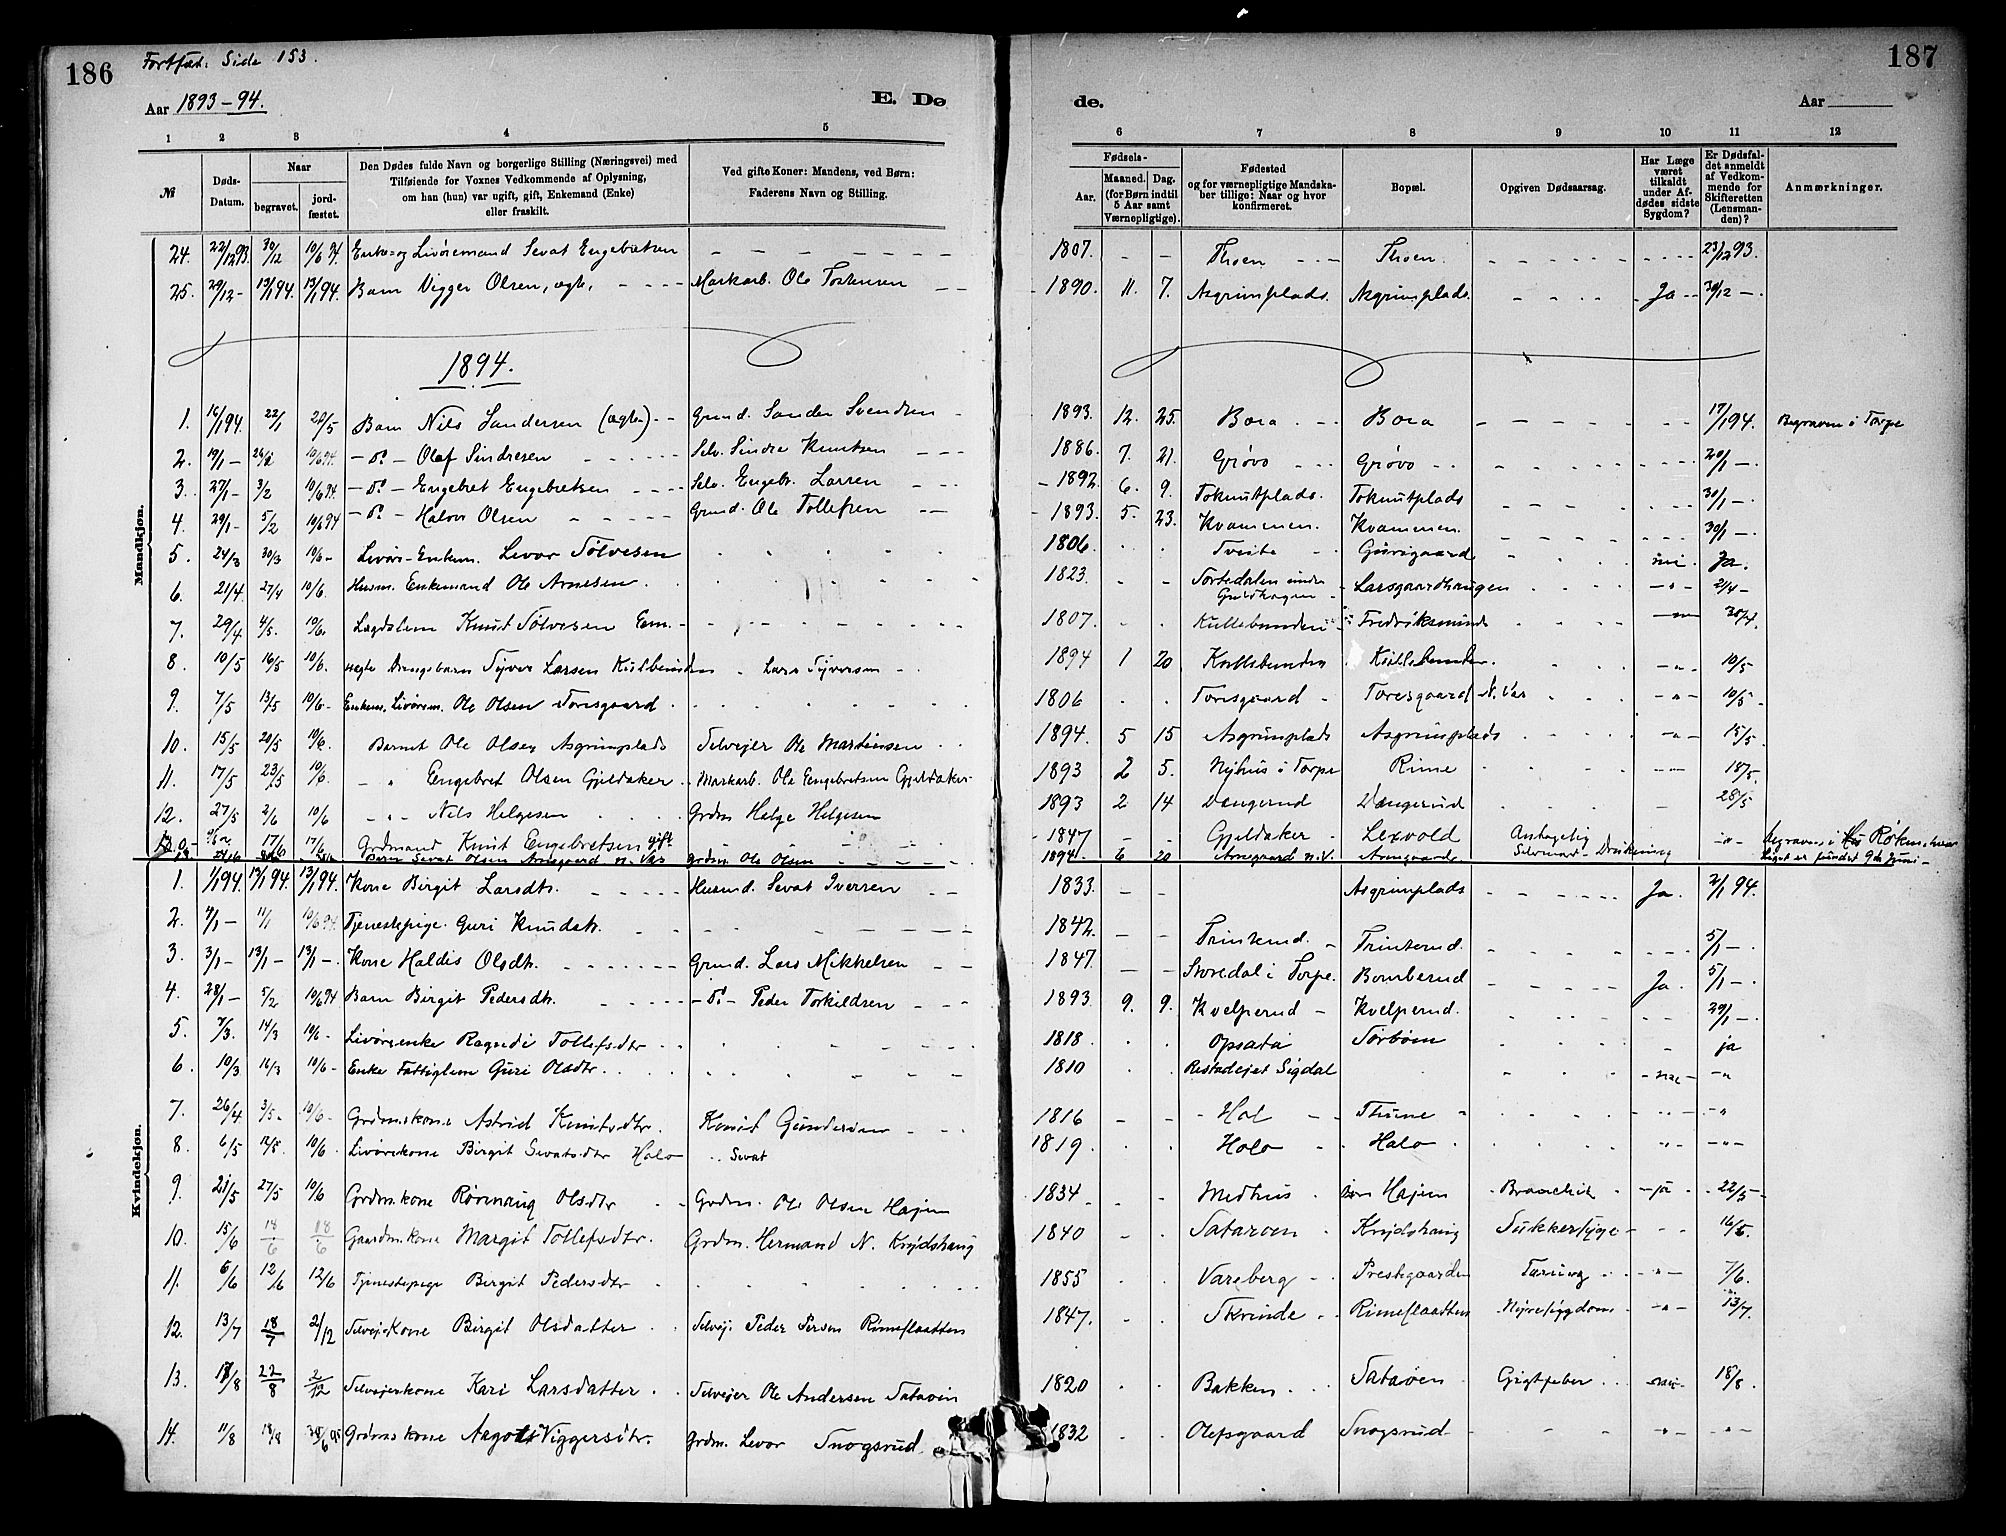 186 Fortsat. Side 153. 187
Aar 1893-94. E. Dø de. Aar
1 2 3 4 5 6 7 8 9 10 11 12
№ Døds-Datum. Naar begravet. jordfæstet. Den Dødes fulde Navn og borgerlige Stilling (Næringsvei) med Tilføiende for Voxnes Vedkommende af Oplysning, om han (hun) var ugift, gift, Enkemand (Enke) eller fraskilt. Ved gifte Koner: Mandens, ved Børn: Faderens Navn og Stilling. Fødsels- Aar. Maaned. Dag. (for Børn indtil 5 Aar samt Værnepligtige). Fødested og for værnepligtige Mandskaber tillige: Naar og hvor konfirmeret. Bopæl. Opgiven Dødsaarsag. Har Læge været tilkaldt under Afdødes sidste Sygdom? Er Dødsfaldet anmeldt af Vedkommende for Skifteretten (Lensmanden)? Anmærkninger.
Mandkjøn.
24. 22/12 93. 30/12 10/6 94. Enke- og Livøremand Sevat Engebretsen - - - 1807. - - Thoen - - Thoen. - - - 23/12 93.
25. 29/12 - 13/1 94. 13/1 94. Barn Vigger Olsen, ægte, - - Markarb. Ole Torstensen - - 1890. 11. 7. Asgrimplads. Asgrimplads. - - - Ja - 30/12 -.
1894.
1. 16/1 94. 22/1 22/5 Barn Nils Sandersen (ægte) - - Grmd. Sander Svendsen - 1893. 12. 25. Bora. - - Bora - - - 17/1 94. Begraven i Torpe
2. 19/1 - 26/1 10/6 94. - Do - Olaf Sindresen - - - Selv. Sindre Knutsen - - 1886. 7. 21. Grøvo - - Grøvo - - - 20/1 -.
3. 27/1 - 3/2 10/6 94. - Do - Engebret Engebretsen - - Selv. Engebr. Larsen - - 1892. 6. 9. Toknutplads. Toknutplads - - - 30/1 -.
4. 29/1 - 5/2 10/6 94 - Do - Halvor Olsen - - - Grmd. Ole Tollefsen - - 1893. 5. 23. Kvammen. Kvammen. - - - 30/1 -.
5. 24/3 30/3 10/6 - Livørs-Enkem. Levor Tølvesen 1806. Tveito - Gurigaard nei. Ja.
6. 21/4. 27/4 10/6. Husm. Enkemand Ole Arnesen. 1823. - - Tortedalen under Guldhagen - Larsgaardhaugen - " - 21/4 -
7. 29/4 4/5. 10/6. Lægdslem Knut Tølvesen Em. - - 1807. Kullebunden - Fredriksminde - " - 30/4.
8. 10/5 16/5 10/6. ægte Drengebarn Syver Larsen Kulbunden - Lars Syversen - - 1894 1 20 Kullebunden Kullebunden. - " - 10/5
9. 7/5 13/5 10/6 - Enkem. Livørem. Ole Olsen Toresgaard 1806 Toresgaard - Toresgaard N. Vas - " - 10/5 -
10. 15/5 20/5 10/6. Barnet Ole Olsen Asgrimplads Selvejer Ole Martinsen 1894. 5 15 Asgrimplads Asgrimplads - " - 15/5.
11. 17/5 23/5 10/6. - " Engebret Olsen Gjeldaker - Markarb. Ole Engebretsen Gjeldaker 1893 2 5. Nyhus i Torpe Rime - " - 18/5.
12. 27/5 2/6 10/6 - " - Nils Helgesen Grdm Helge Helgesen 1893 2 14 Dengerud Dengerud - 28/5
17/6 17/6 Grdmand Knut Engebretsen gift - - - 1847 - - Gjeldaker - Lexvold Antagelig Selvmord - Drukning - " - Begraven i Røken, hvor liget er fundet 9de Juni -
Barn Sevat Olsen Arnegaard N. Vas Grdm. Ole Olsen - - 1894 6 20 Arnegaard N. V. Arnegaard
Kvindekjøn.
1. 1/1 94. 13/1 94. 13/1 94. Kone Birgit Larsdtr. - - - Husmd. Sevat Iversen - - 1833. - - Asgrimplads - - - Ja. 2/1 94.
2. 4/1 - 11/1 10/6 94. Tjenestepige. Guri Knudsdtr. - - - 1842. - - Trinterud. - Trinterud. - - - 5/1 -.
3. 3/1 - 13/1 - 13/1 -. Kone Haldis Olsdtr. - - - Grmd. Lars Mikkelsen - - 1847. - - Storedal i Torpe. Bomberud - - - Ja. 5/1 -.
4. 28/1 - 5/2 10/6 94 Barn Birgit Pedersdtr. - - - - Do - Peder Torkildsen - - 1893 9. 9. Kvelperud - Kvelperud. - - - 29/1 -.
5. 7/3. 14/3 10/6 - Livørsenke Ragndi Tollefsdtr 1818. Opsata Sørbøen ja
6. 10/3 16/3 10/6 - Enke Fattiglem Guri Olsdtr. 1810 Restadejet Sigdal - nei - - "
7. 26/4 3/5 - 10/6 - Grdmskone Astrid Knutsdtr. Knut Gundersen - - 1816 - - Hol - - Thune - " - - "
8. 6/5 12/5. 10/6. Livørekone Birgit Sevatsdtr Holo " Sevat 1819. Holo - Holo " - " -
9. 21/5 27/5 10/6 Grdm.kone Rønnaug Olsdtr Grdm. Ole Olsen Hajem 1834 - - Medhus - Hajem - Brændkit - - ja - 22/5 -
10. 15/6 18/6 18/6 Gaardm.kone Margit Tollefsdtr. Grdm. Hermand N. Krydshaug 1840 - Sataroen Krydshaug Sukkersyge - - 16/6.
11. 6/6 12/6 12/6 Tjenestepige Birgit Pedersdtr 1855 Vareberg - Prestegaarden Tæring - " - 7/6.
12. 13/7 18/7 2/12 Selvejskone Birgit Olsdatter Selvej. Peder Persen Rimeslaatten 1847. Skrinde - Rimeslaatten Nyresygdom - " - 13/7.
13. 17/8 22/8 2/12 Selvejerkone Kari Larsdatter Selvejer Ole Andersen Sataøen 1820 Bakken. Sataøen Gigtfeber nei - 18/8.
14. 11/8 18/8 Grdmskone Aagot Viggersdtr. Grdm. Levor Snogsrud 1832 Olefsgaard Snogsrud - " - - " -